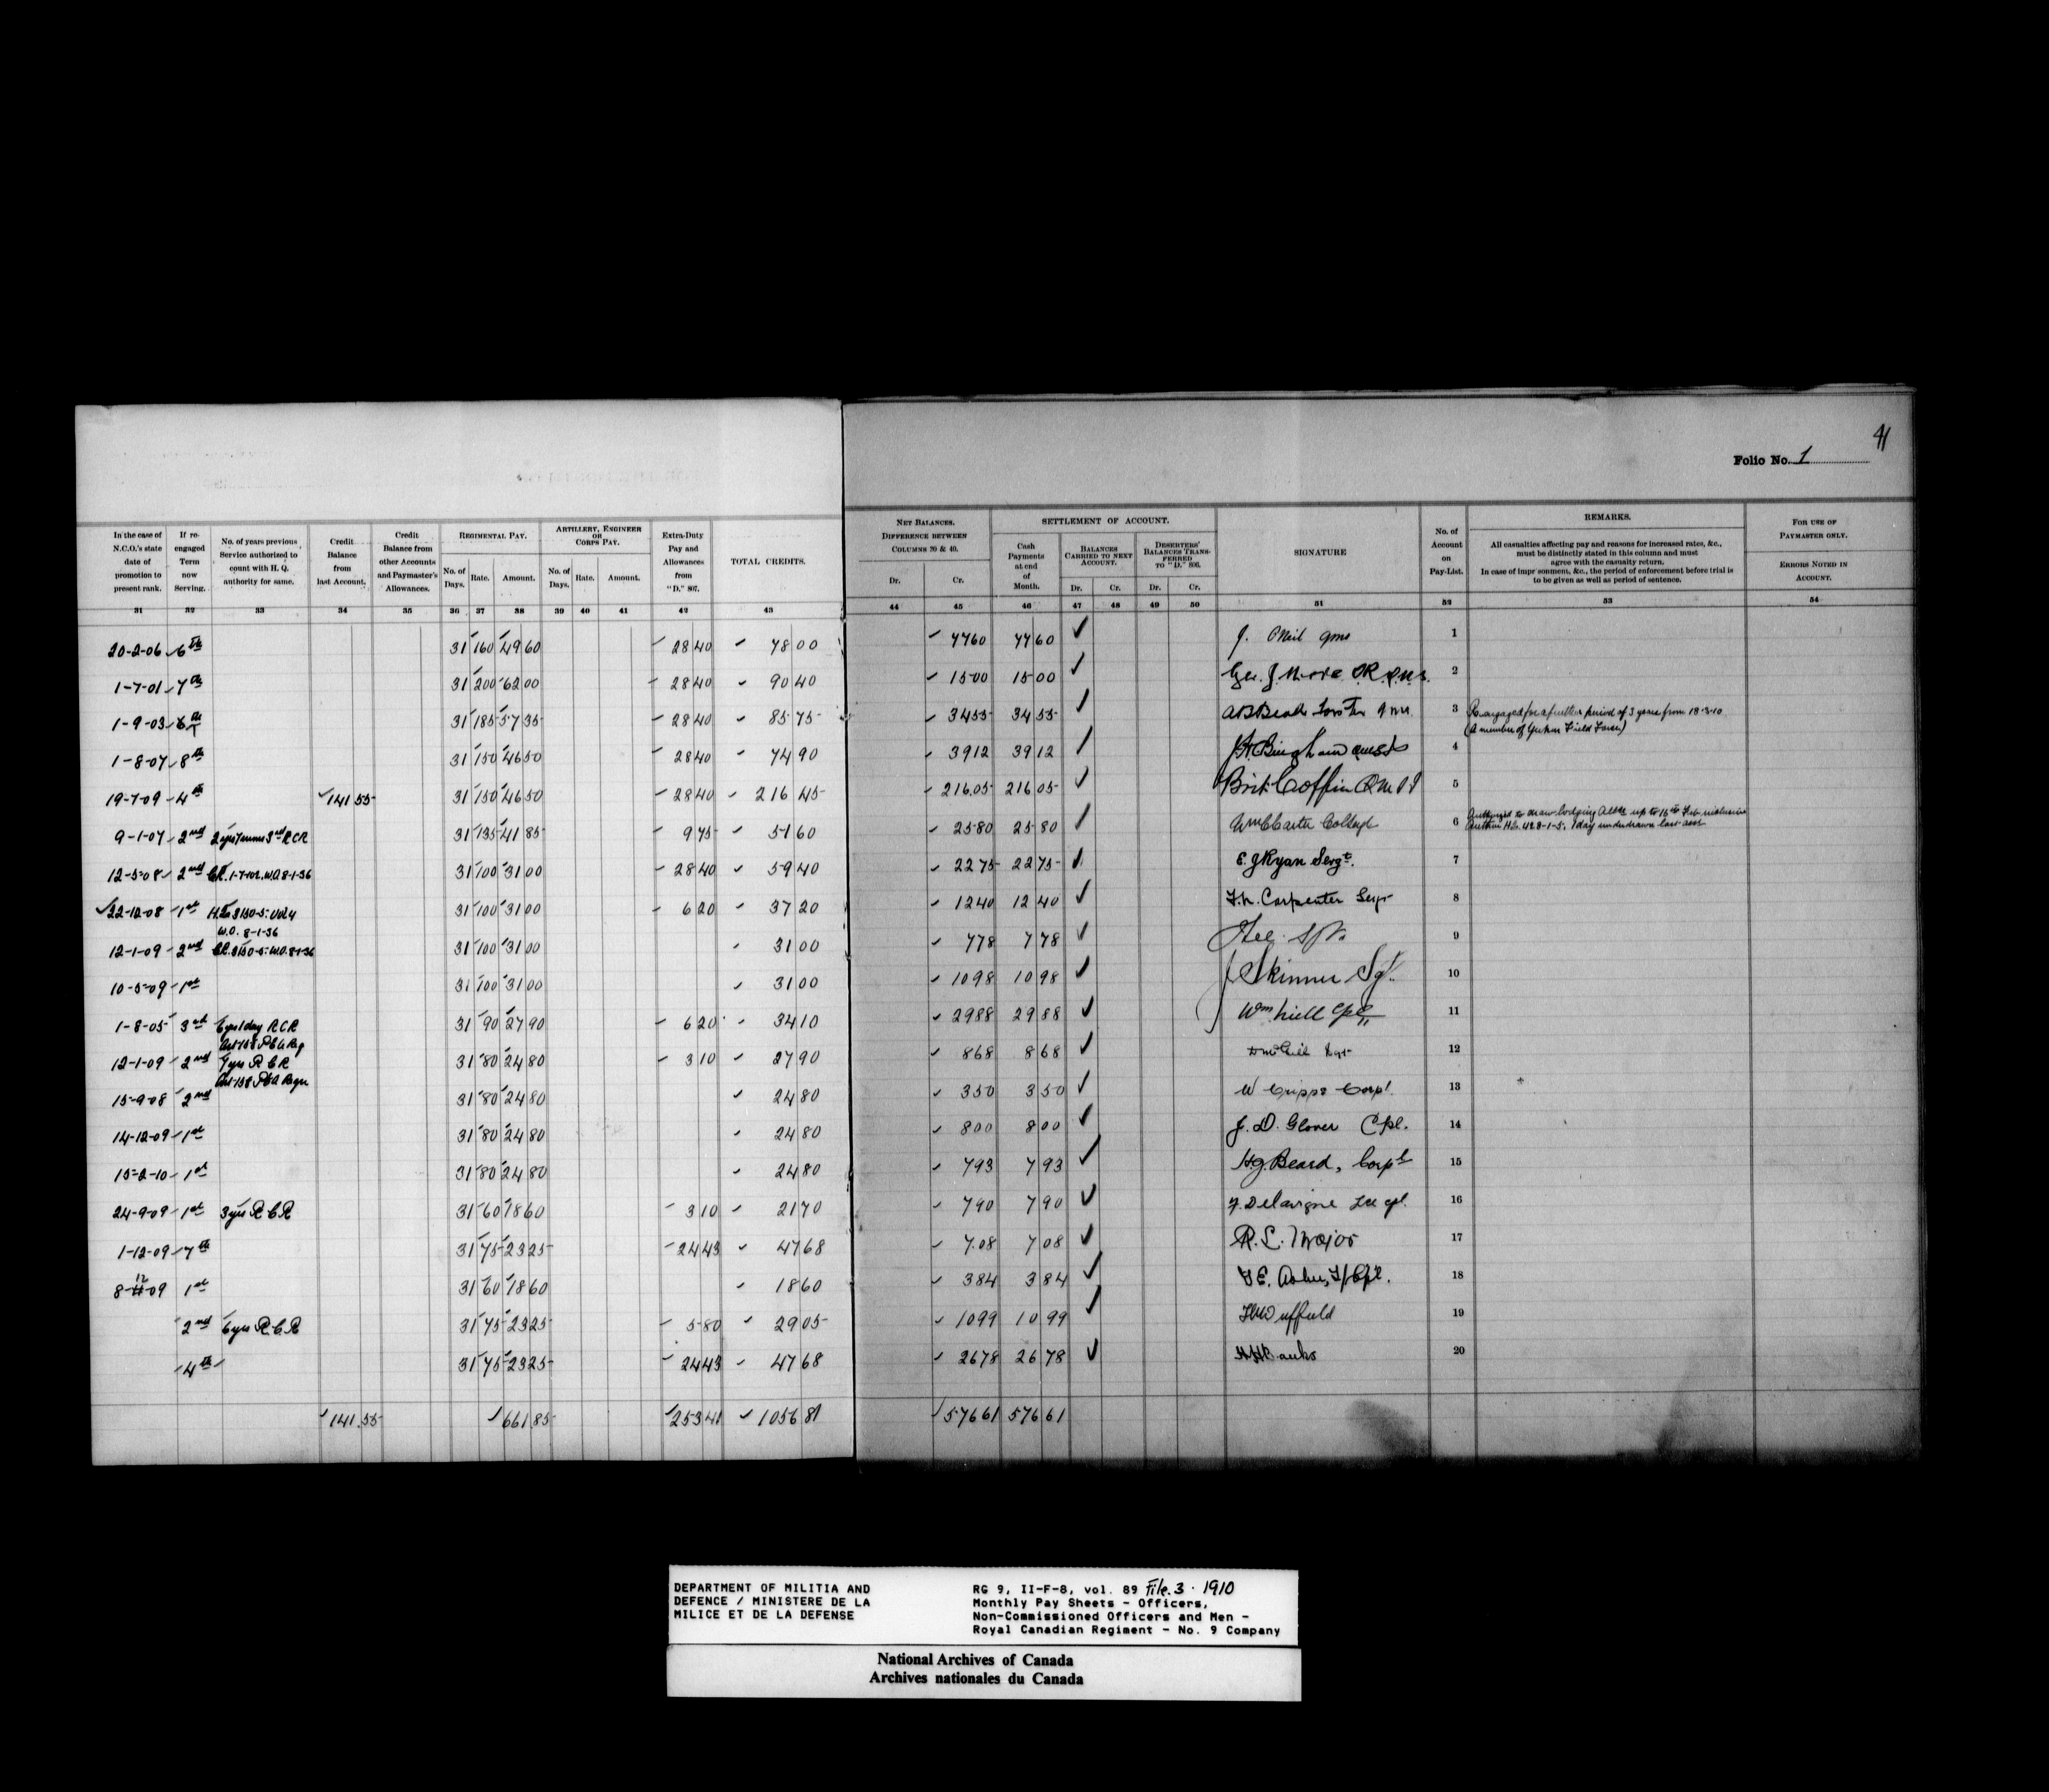 41
Folio No. 1
In the case of N.C.O.'s state date of promotion to present rank.
If re-engaged Term now Serving.
No. of years previous Service authorized to count with H. Q. authority for same.
Credit Balance from last Account.
Credit Balance from other Accounts and Paymaster's Allowances.
REGIMENTAL PAY.
No. of Days. Rate. Amount.
ARTILLERY, ENGINEER OR CORPS PAY.
No. of Days. Rate. Amount.
Extra-Duty Pay and Allowances from "D." 807.
TOTAL CREDITS.
NET BALANCES. DIFFERENCE BETWEEN COLUMNS 30 & 40.
Dr. Cr.
SETTLEMENT OF ACCOUNT.
Cash Payments at end of Month.
BALANCES CARRIED TO NEXT ACCOUNT.
Dr. Cr.
DESERTERS' BALANCES TRANSFERRED TO "D." 806.
Dr. Cr.
SIGNATURE
No. of Account on Pay-List.
REMARKS.
All casualties affecting pay and reasons for increased rates, &c., must be distinctly stated in this column and must agree with the casualty return.
In case of imprisonment, &c., the period of enforcement before trial is to be given as well as period of sentence.
FOR USE OF PAYMASTER ONLY.
ERRORS NOTED IN ACCOUNT.
31 32 33 34 35 36 37 38 39 40 41 42 43 44 45 46 47 48 49 50 51 52 53 54
20-2-06 6th 31 160 49 60 28 40 78 00 47 60 47 60 J. O'Neil qms 1
1-7-01 7th 31 200 62 00 28 40 90 40 15 00 15 00 Geo. J. Moore 2
1-9-03 6th 31 185 57 35 28 40 85 75 34 55 34 55 3 Re-engaged for a further period of 3 years from 18-3-10
(A member of Yukon Field Force)
1-8-07 8th 31 150 46 50 28 40 74 90 39 12 39 12 Bingham 4
19-7-09 4th 141 55 31 150 46 50 28 40 216 45 216.05 216 05 Brit. Coffin Q M S 5
9-1-07 2nd 3rd RCR 31 135 41 85 9 75 51 60 25 80 25 80 Wm C Carter Col Sergt 6 Authorized to draw lodging allce up to 15th Feb. inclusive
Author H.Q. 428-1-5. 1 day underdrawn last acct
12-5-08 2nd W.O. 8-1-36 31 100 31 00 28 40 59 40 22 75 22 75 E. J Ryan Sergt. 7
22-12-08 1st H.Q. 8150-5. Vol 4 31 100 31 00 6 20 37 20 12 40 12 40 F. N. Carpenter Sergt 8
W.O. 8-1-36
12-1-09 2nd 8150-5. W.O. 8-1-36 31 100 31 00 31 00 7 78 7 78 9
10-5-09 1st 31 100 31 00 31 00 10 98 10 98 J Skinner Sgt. 10
1-8-05 3rd 6 yrs 1 day R C R 31 90 27 90 6 20 34 10 29 88 29 88 Wm 11
12-1-09 2nd 7 yrs R C R 31 80 24 80 3 10 27 90 8 68 8 68 12
15-9-08 2nd 31 80 24 80 24 80 3 50 3 50 W Cripps Corpl. 13
14-12-09 1st 31 80 24 80 24 80 8 00 8 00 J. D. Glover Cpl. 14
15-2-10 1st 31 80 24 80 24 80 7 93 7 93 H.J. Beard, Corpl 15
24-9-09 1st 3 yrs R C R 31 60 18 60 3 10 21 70 7 90 7 90 F. Delavigne Lce cpl. 16
1-12-09 7th 31 75 23 25 24 43 47 68 7.08 7 08 R. L. Major 17
8-12-09 1st 31 60 18 60 18 60 3 84 3 84 18
2nd 6 yrs R.C.R 31 75 23 25 5 80 29 05 10 99 10 99 Duffield 19
4th 31 75 23 25 24 43 47 68 26 78 26 78 H H Banks 20
141.55 661 85 253 41 1056 81 576 61 576 61
DEPARTMENT OF MILITIA AND
DEFENCE / MINISTERE DE LA
MILICE ET DE LA DEFENSE
RG 9, II-F-8, vol. 89 File. 3 · 1910
Monthly Pay Sheets - Officers,
Non-Commissioned Officers and Men -
Royal Canadian Regiment - No. 9 Company
National Archives of Canada
Archives nationales du Canada